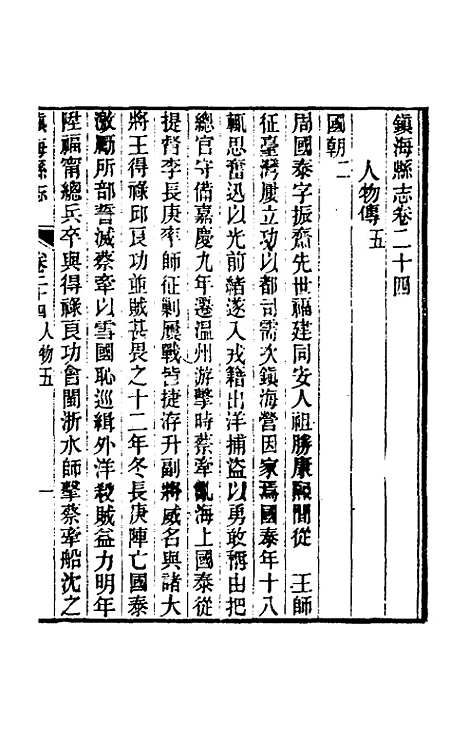 鎮海縣志卷二十四
人物傳五
國朝二
周國泰字振齋先世福建同安人祖勝康熙間從　王師
征臺灣屢立功以都司需次鎮海營因家焉國泰年十八
輒思奮迅以光前緒遂入戎籍出洋捕盜以勇敢稱由把
總官守備嘉慶九年遷溫州游擊時蔡牽亂海上國泰從
提督李長庚率師征剿屢戰皆捷洊升副將威名與諸大
將王得祿邱良功並賊甚畏之十二年冬長庚陣亡國泰
激勵所部誓滅蔡牽以雪國恥巡緝外洋殺賊益力明年
陞福甯總兵卒與得祿良功會閩浙水師擊蔡牽船沈之
鎮海縣志
卷二十四人物五
一